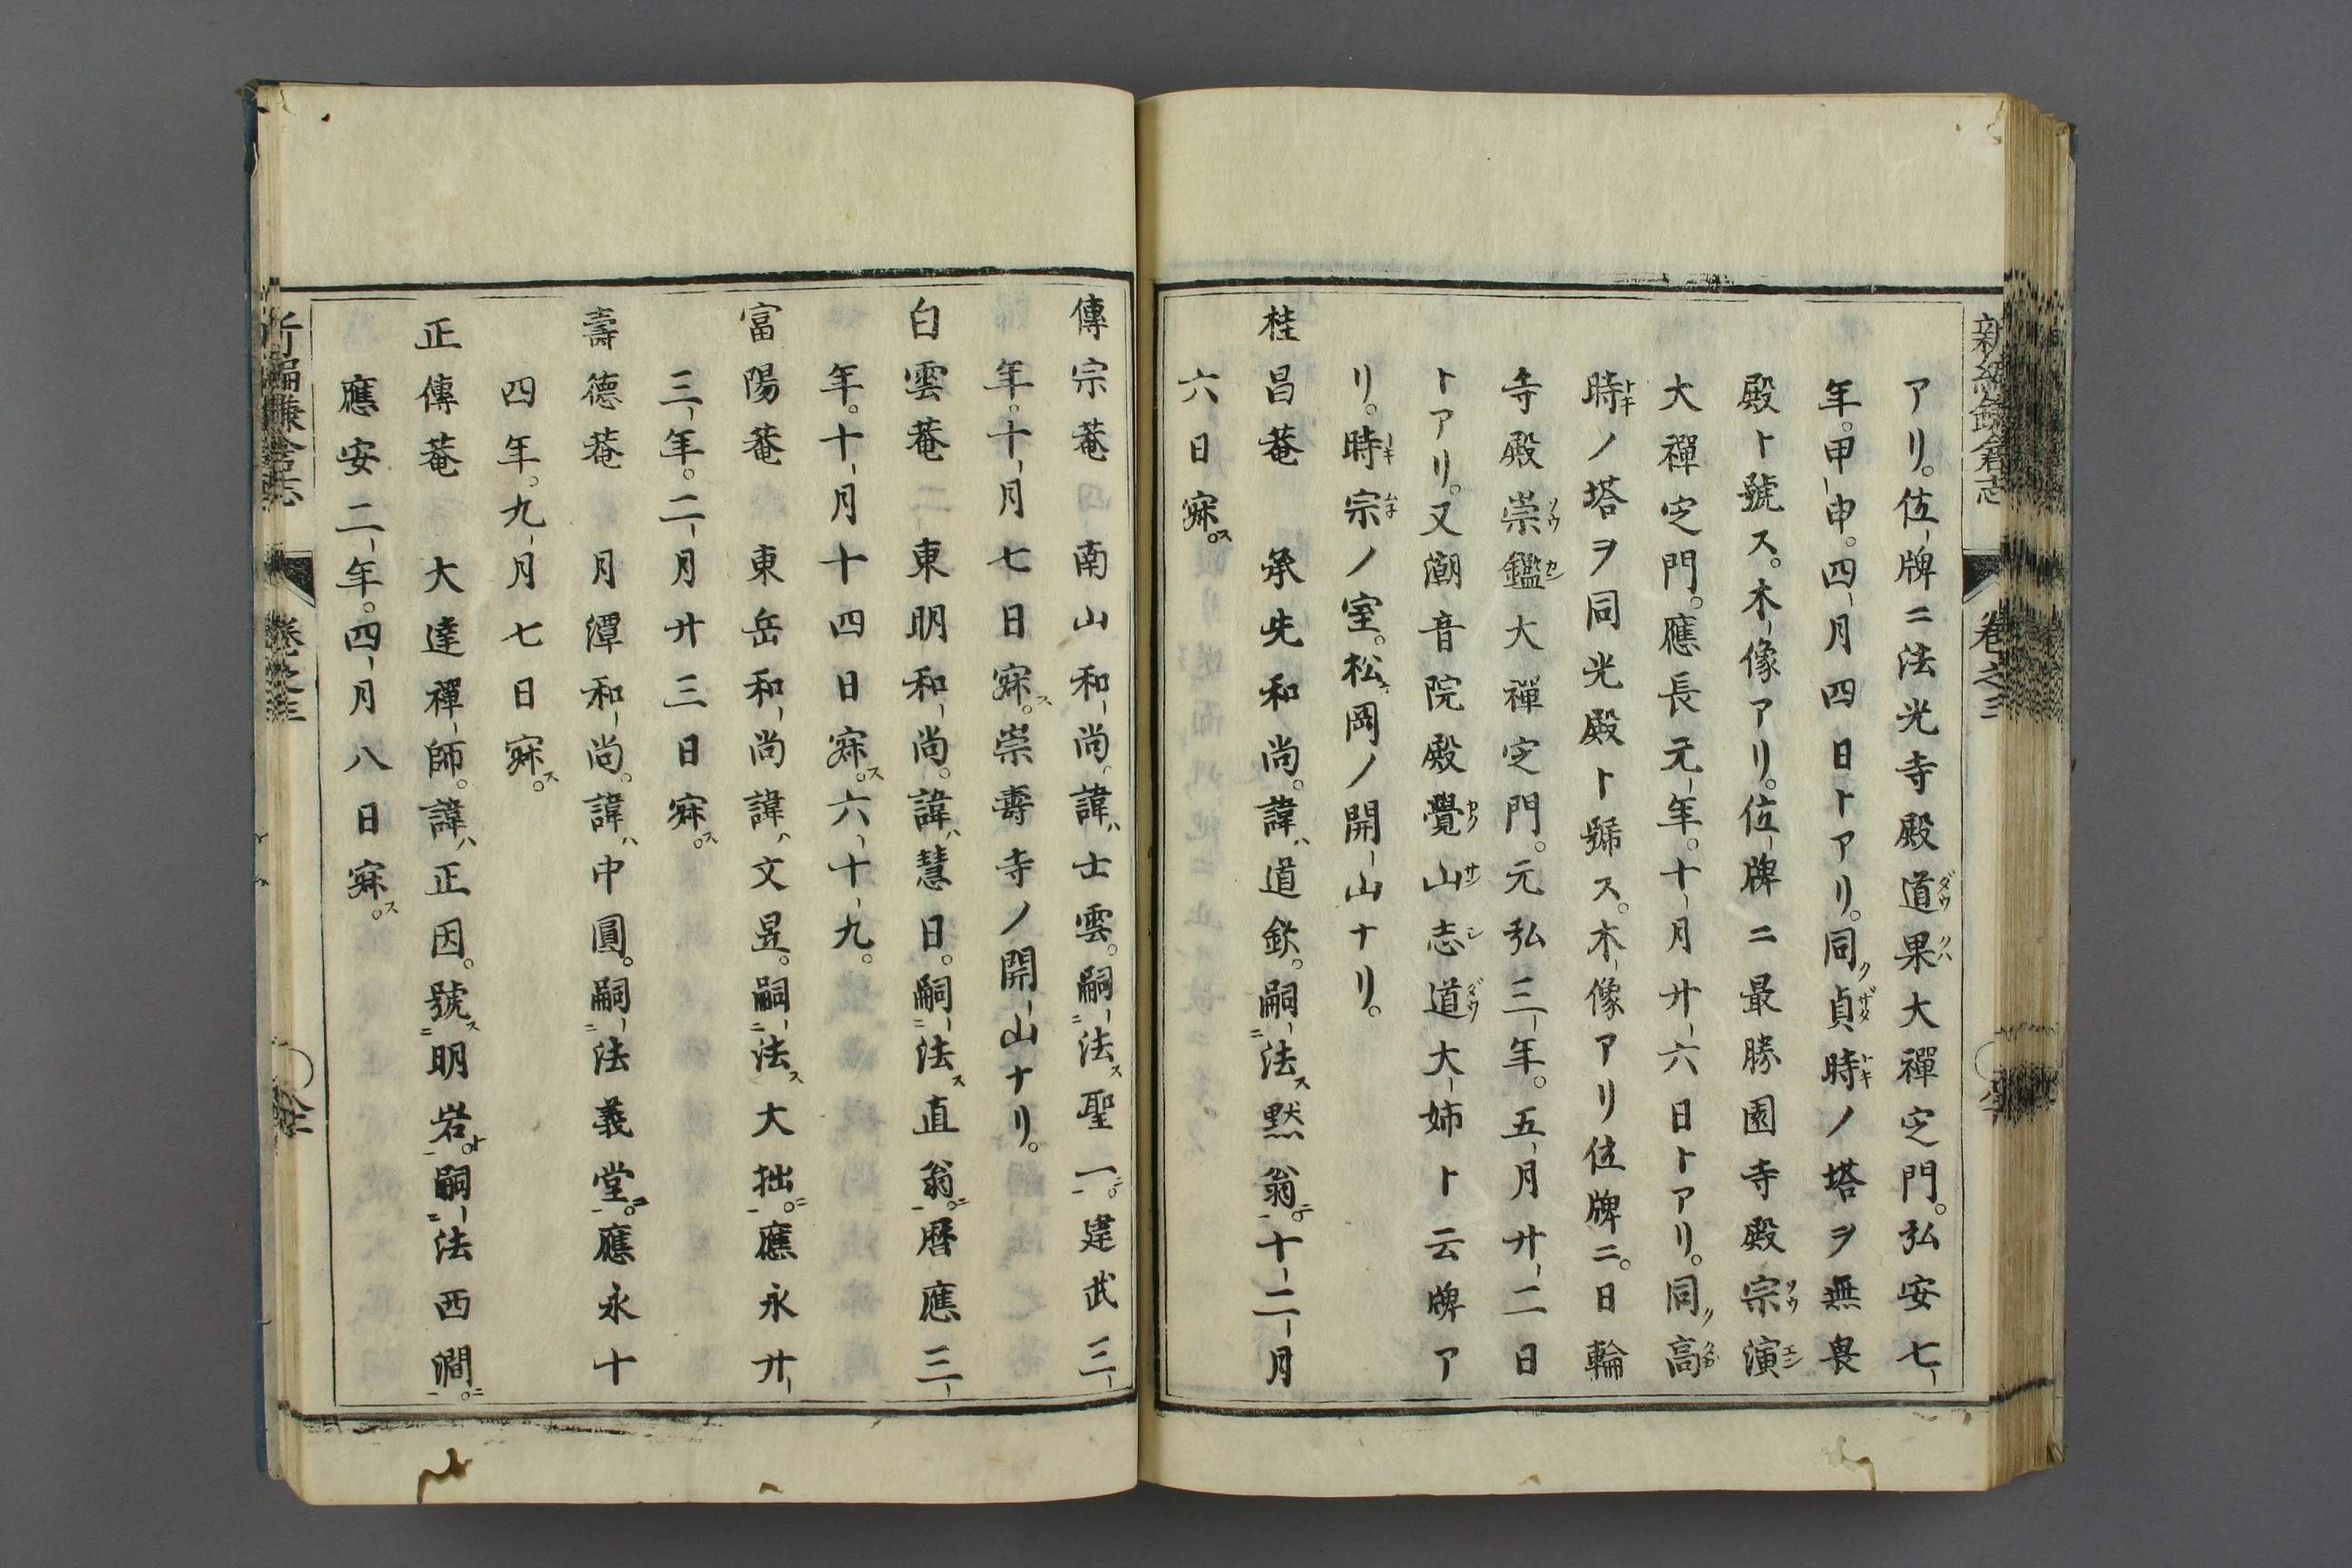 新編鎌倉志
卷之三
アリ。位牌ニ法光寺殿道果大禪定門。弘安七
年。甲申。四月四日トアリ。同貞時ノ塔ヲ無畏
殿ト號ス。木像アリ。位牌ニ最勝園寺殿宗演
大禪定門。應長元年。十月廿六日トアリ。同高
時ノ塔ヲ同光殿ト號ス。木像アリ位牌ニ。日輪
寺殿崇鑑大禪定門。元弘三年。五月廿二日
トアリ。又潮音院殿覺山志道大姉ト云牌ア
リ。時宗ノ室。松岡ノ開山ナリ。
桂昌菴 承先和尚。諱ハ道欽。嗣法ス默翁ニ。十二月
六日寂ス。
傳宗菴 南山和尚。諱ハ士雲。嗣法ス聖一ニ。建武三
年。十月七日寂ス。崇壽寺ノ開山ナリ。
白雲菴 東明和尚。諱ハ慧日。嗣法ス直翁ニ。曆應三
年。十月十四日寂ス。六十九。
富陽菴 東岳和尚諱ハ文昱。嗣法ス大拙ニ。應永廿
三年。二月廿三日寂ス。
壽德菴 月潭和尚。諱ハ中圓。嗣法義堂ニ。應永十
四年。九月七日寂ス。
正傳菴 大達禪師。諱ハ正因。號ス明岩ト。嗣法西澗ニ。
應安二年。四月八日寂ス。
新編鎌倉志
卷之三